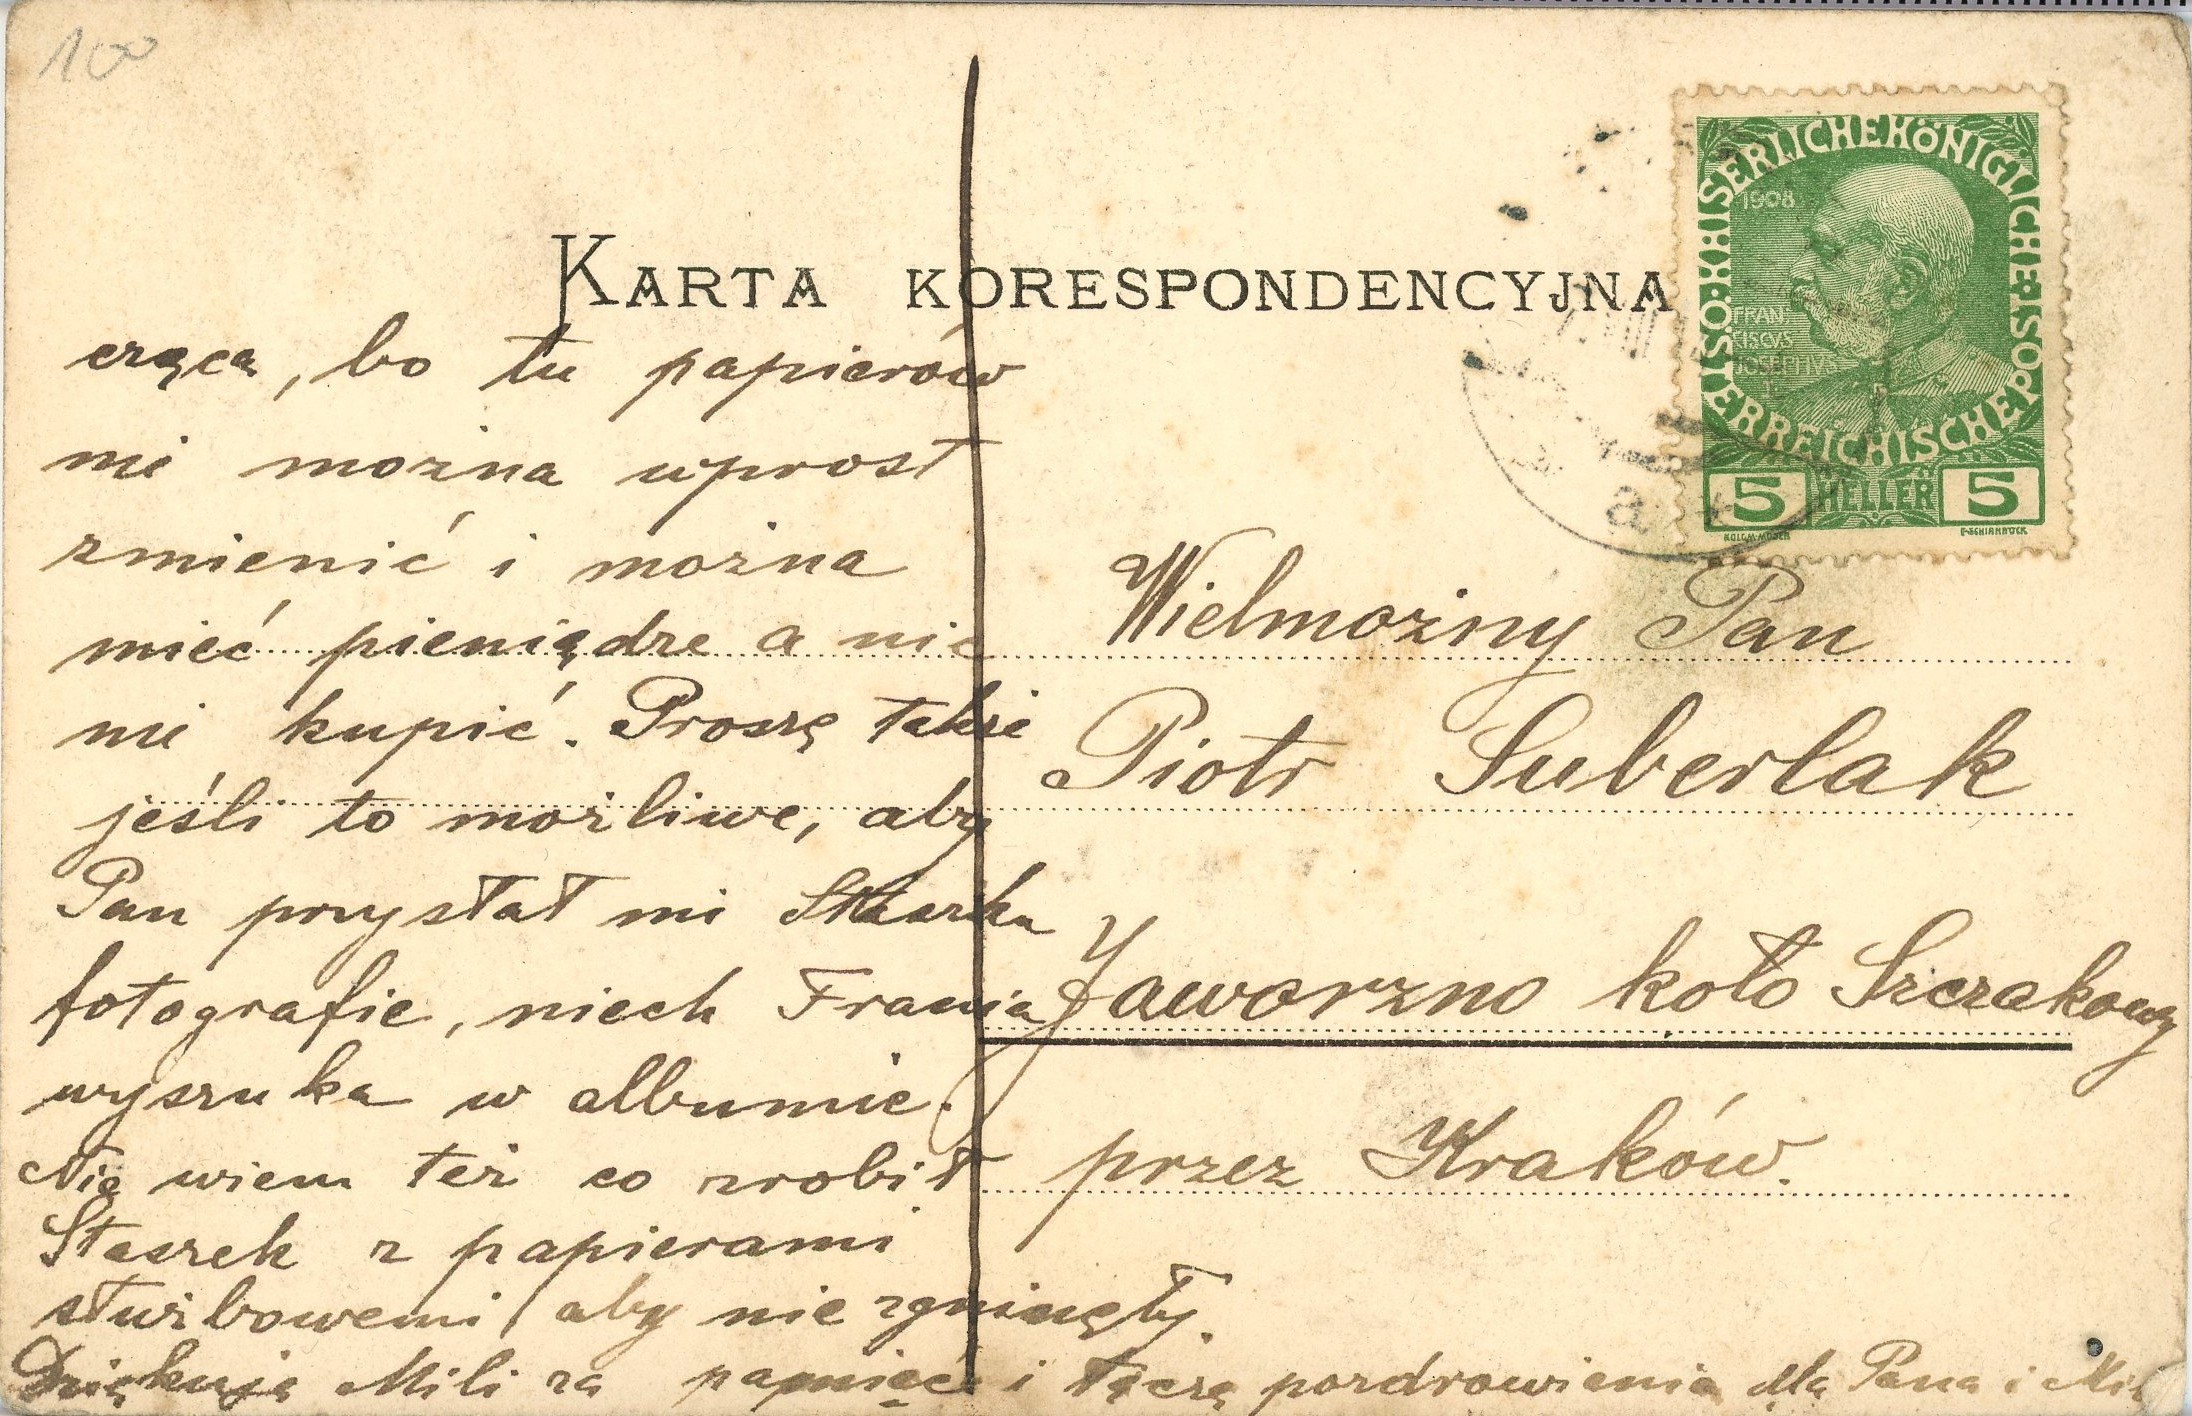 100
KARTA KORESPONDENCYJNA
KAISERLICHE KÖNIGLICHE ÖSTERREICHISCHE POST
1908
FRAN
CISCVS
IOSEPHVS
I
5 HELLER 5
KOLO.MOSER
F.SCHIRNBÖCK
a
cząca, bo tu papierów
mi można uprost
zmienić i można
mieć pieniądze a nie
mi kupić. Proszę także
jeśli to możliwe, aby
Pan przysłał mi Staszka
fotografie, niech Frania
wyszuka w albumie.
Nie wiem też co zrobił
Staszek z papierami
służbowemi, aby nie zginęły.
Dziękuję Mili za pamięć i łączę pozdrowienia dla Pana i Mili
Wielmożny Pan
Piotr Suberlak
Jaworzno koło Szczakowy
przez Kraków.